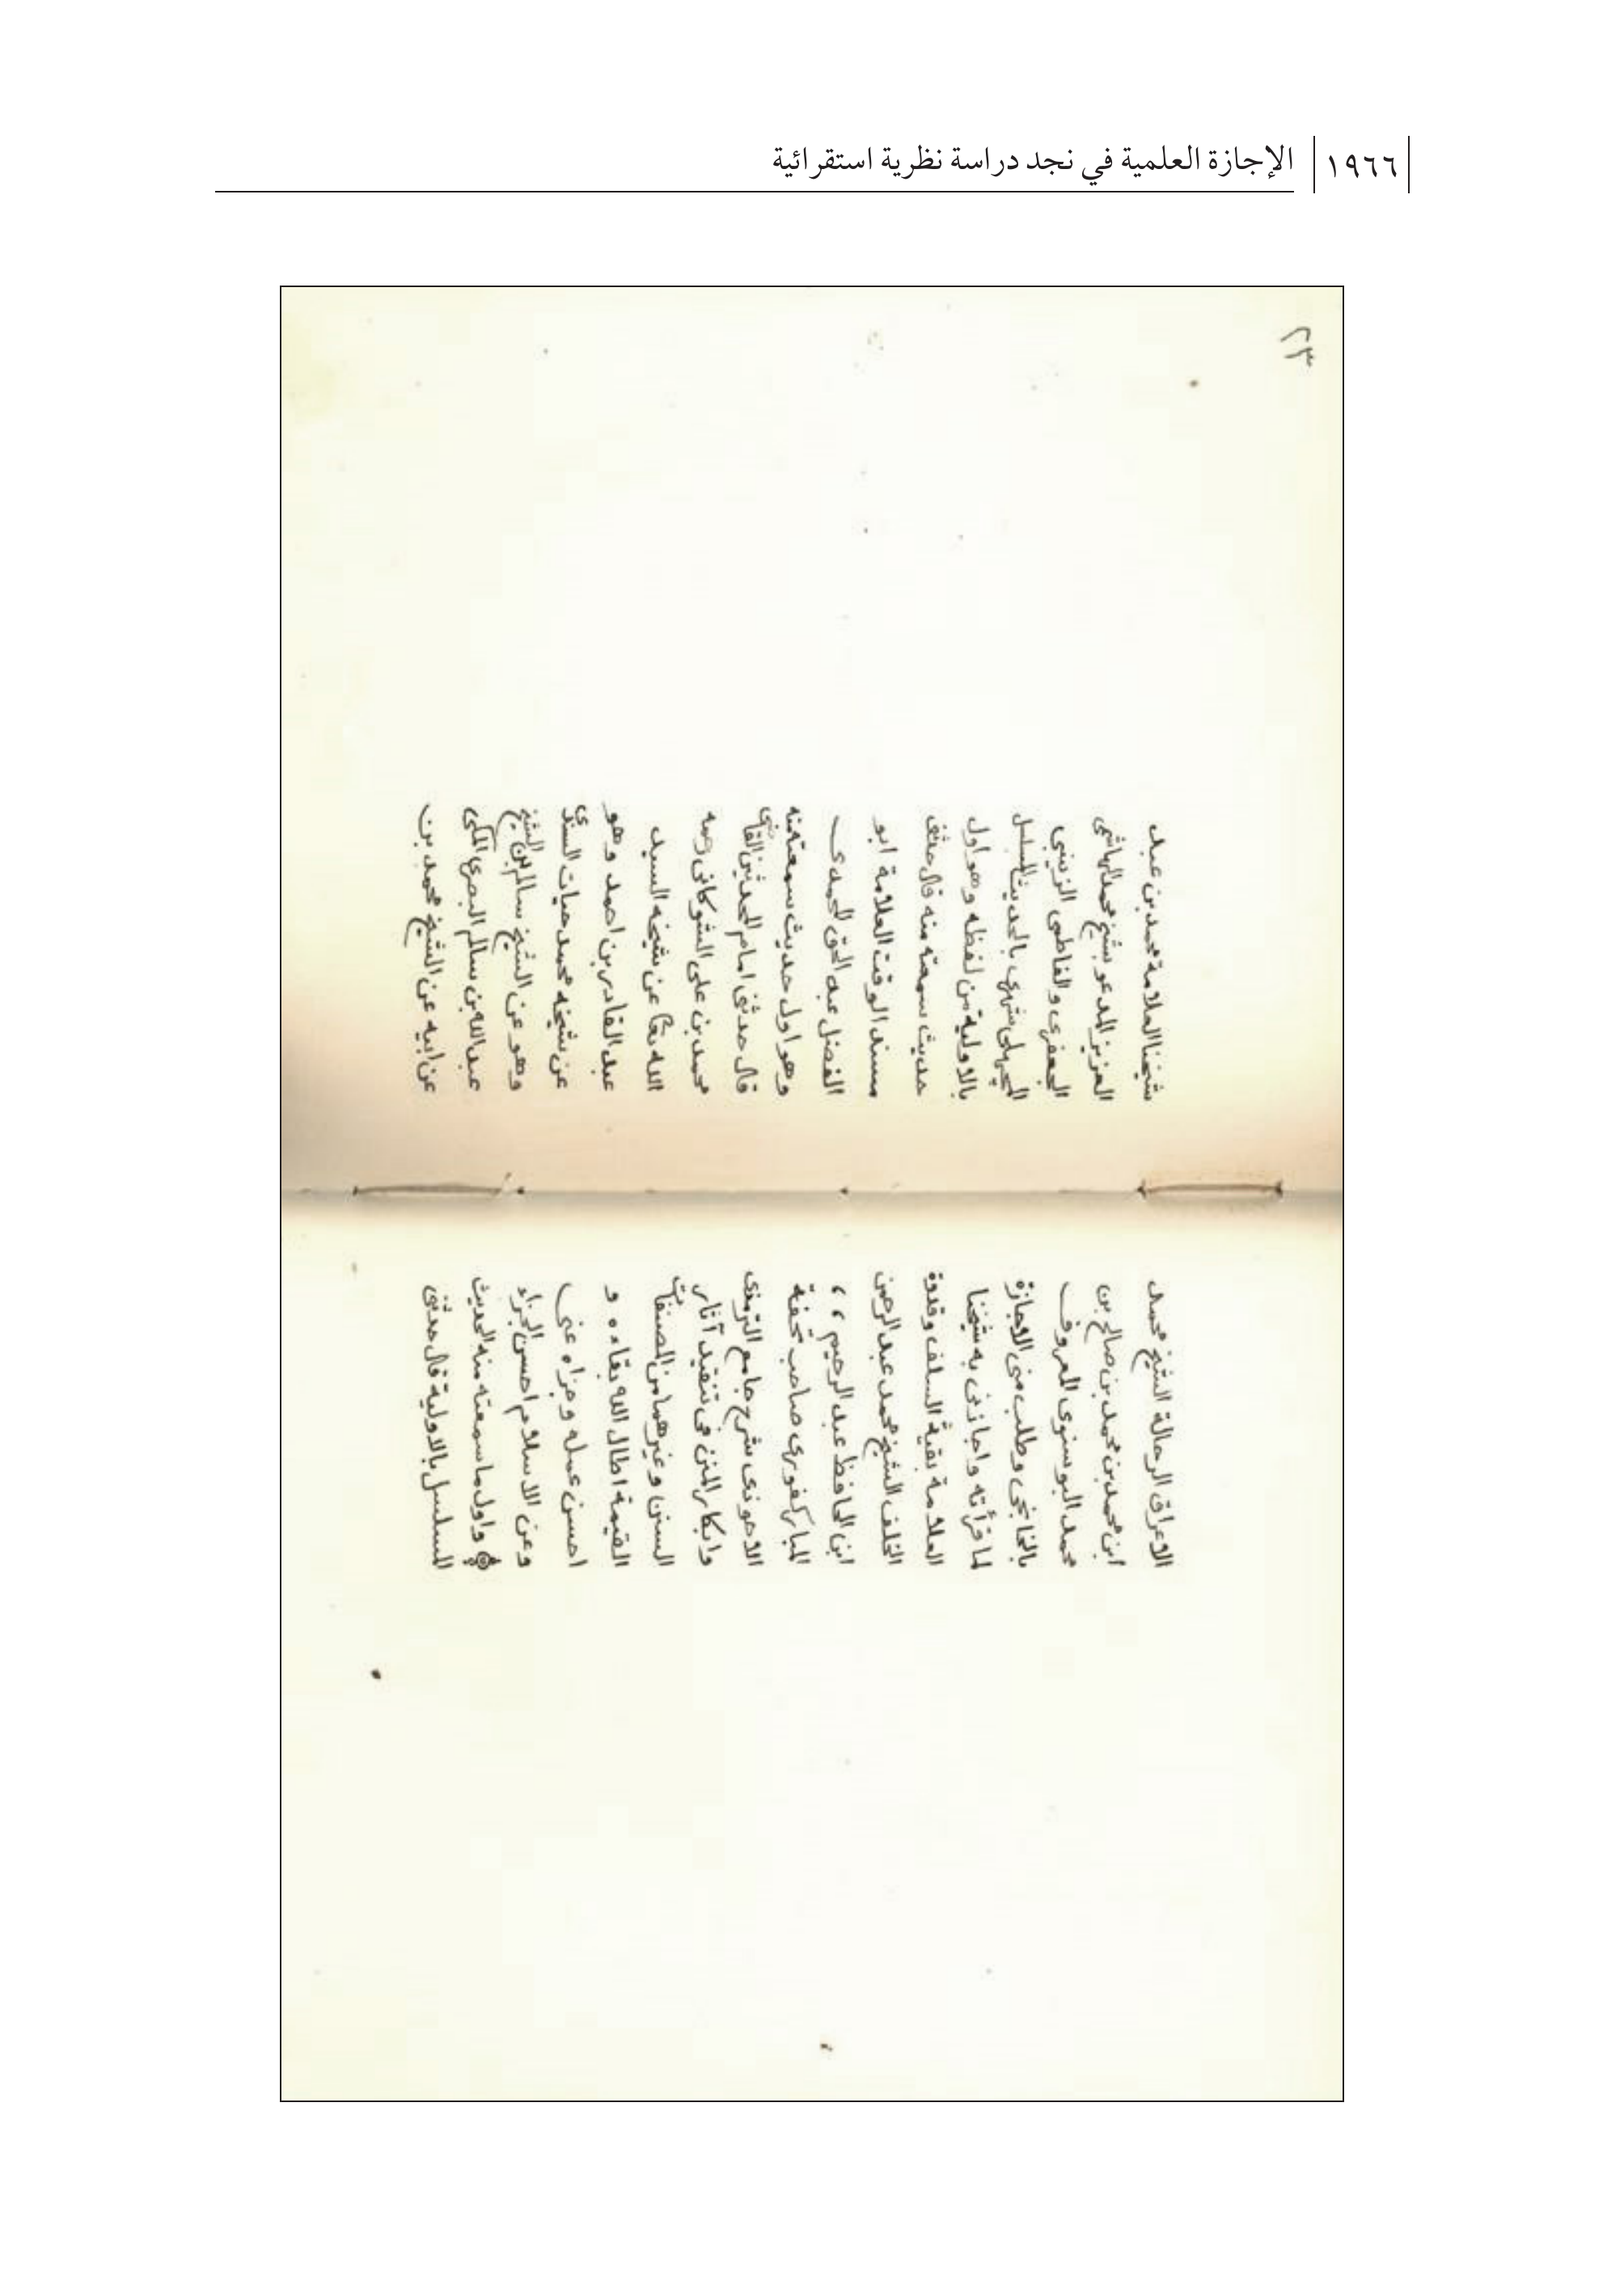 ١٩٦٦
الإجازة العلمية في نجد دراسة نظرية استقرائية
٢٣
الاعراق الرحالة الشيخ محمد
ابن محمد بن محمد بن صالح بن
محمد البوسنوى المعروف
بالخانجى وطلب منى الاجازة
لما قرأته واجازنى به شيخنا
العلامة بقية السلف وقدوة
الخلف الشيخ محمد عبد الرحمن
ابن الحافظ عبد الرحيم
المباركفورى صاحب تحفة
الاحوذى شرح جامع الترمذى
وابكار المنن فى تنقيد آثار
السنن وغيرهما من المصنفات
القيمة اطال الله بقاءه و
احسن عمله وجزاه عنى
وعن الاسلام احسن الجزاء
واول ما سمعته منه الحديث
المسلسل بالاولية قال حدثنى
شيخنا العلامة محمد بن عبد
العزيز المدعو بشيخ محمد الهاشمى
الجعفرى والفاطمى الزينبى
المچهلى شهرى بالحديث المسلسل
بالاولية من لفظه وهو اول
حديث سمعته منه قال حدثنى
مسند الوقت العلامة ابو
الفضل عبد الحق المحمدى
وهو اول حديث سمعته منه
قال حدثنى امام المحدثين القاضى
محمد بن على الشوكانى رحمه
الله تعا عن شيخه السيد
عبد القادر بن احمد وهو
عن شيخه محمد حيات السندى
وهو عن الشيخ سالم بن الشيخ
عبد الله بن سالم البصرى المكى
عن ابيه عن الشيخ محمد بن